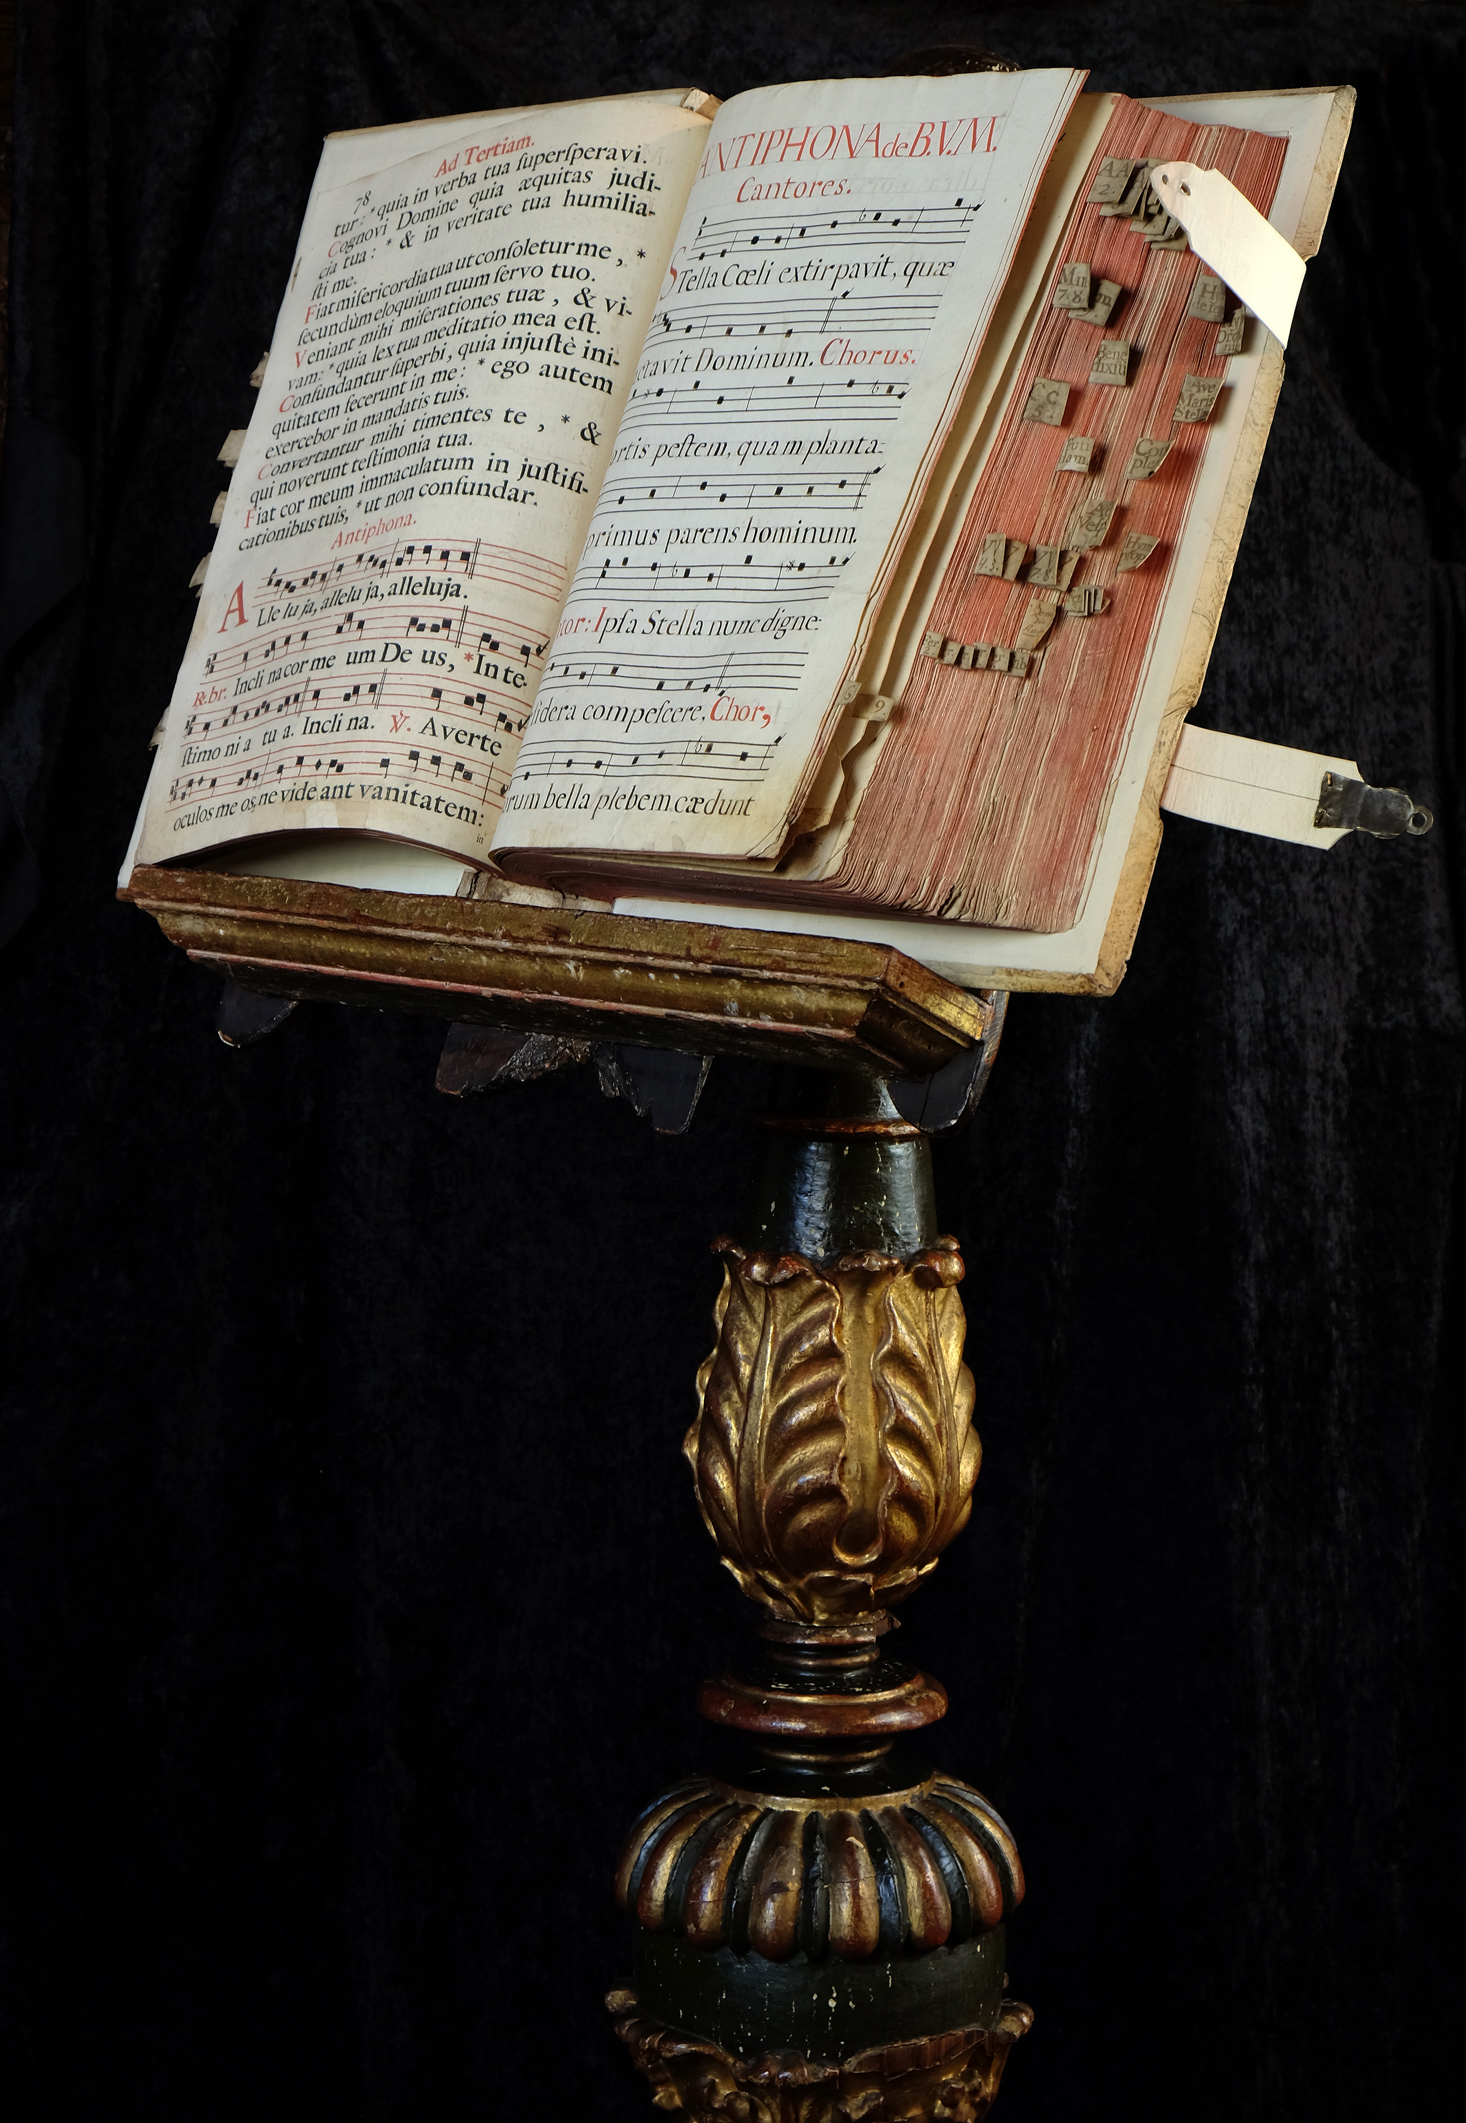 78
Ad Tertiam.
tur: * quia in verba tua ſuperſperavi.
Cognovi Domine quia æquitas judi-
cia tua: * & in veritate tua humilia-
ſti me.
Fiat miſericordia tua ut conſoletur me, *
ſecundùm eloquium tuum ſervo tuo.
Veniant mihi miſerationes tuæ, & vi-
vam: * quia lex tua meditatio mea eſt.
Confundantur ſuperbi, quia injuſtè ini-
quitatem fecerunt in me: * ego autem
exercebor in mandatis tuis.
Convertantur mihi timentes te, * &
qui noverunt teſtimonia tua.
Fiat cor meum immaculatum in juſtifi-
cationibus tuis, * ut non confundar.
Antiphona.
Alle lu ja, allelu ja, alleluja.
R. br. Incli na cor me um De us, * In te-
ſtimo ni a tu a. Incli na. V. Averte
oculos me os, ne vide ant vanitatem:
in
ANTIPHONA de B.V.M.
Cantores.
STella Cœli extirpavit, quæ
ctavit Dominum. Chorus.
ortis peſtem, quam planta:
primus parens hominum.
tor: Ipſa Stella nunc digne:
ſidera compeſcere. Chor,
rum bella plebem cædunt
AA
Mm
7.8.
H
Bene
dixiſti
C C
Ave
Maris
Stella
Com
ple
A
Veſp
9